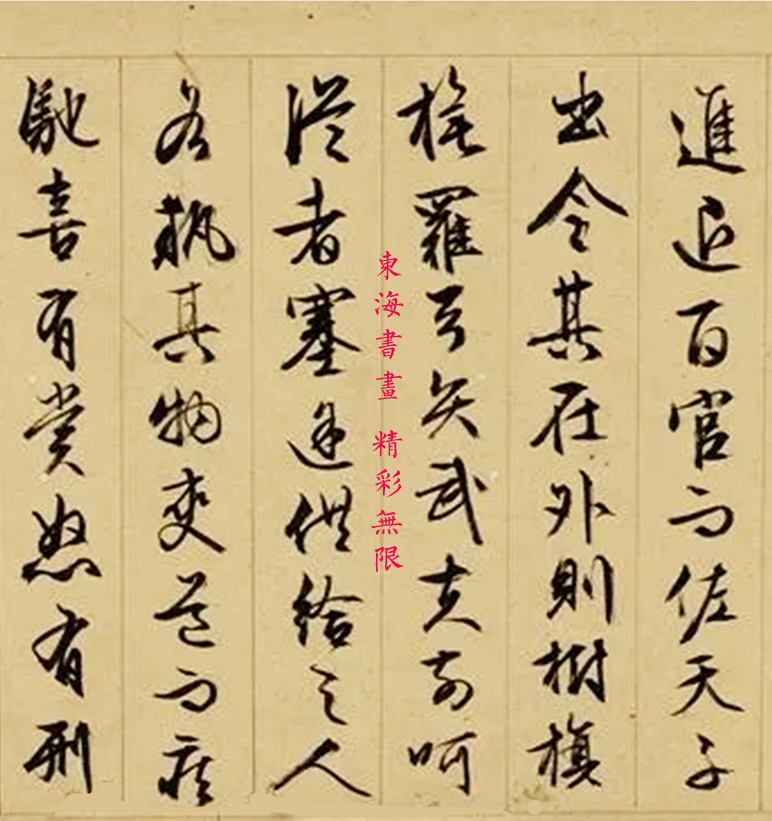 進退百官而佐天子
出令其在外則樹旗
旄羅弓矢武夫前呵
從者塞途供給之人
各執其物夾道而疾
馳喜有賞怒有刑
東海書畫 精彩無限